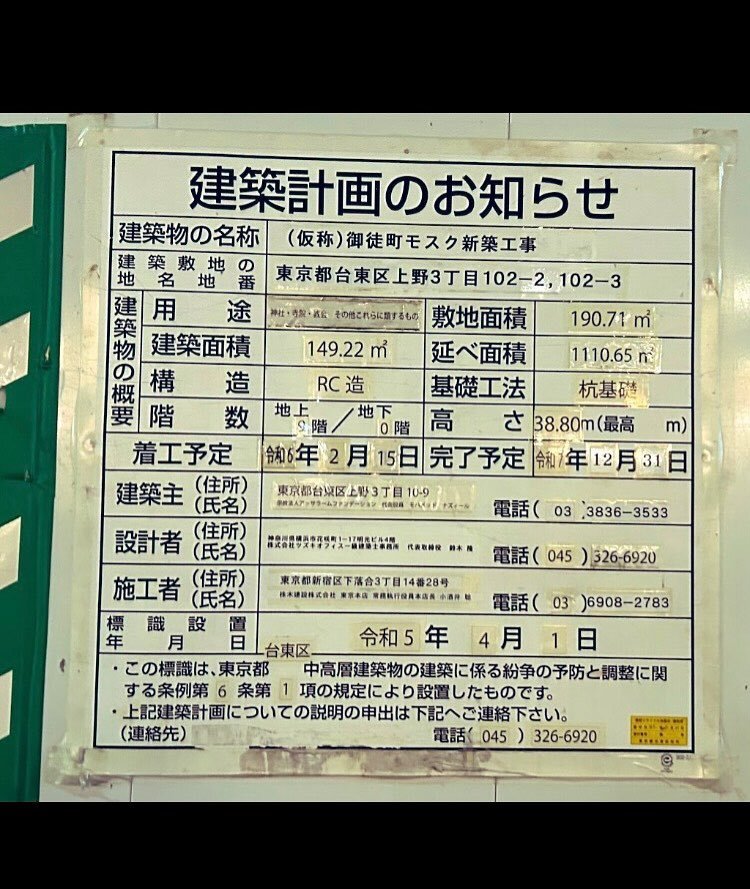 建築計画のお知らせ
建築物の名称 (仮称)御徒町モスク新築工事
建築敷地の地名地番 東京都台東区上野3丁目102-2,102-3
建築物の概要
用途 神社・寺院・教会 その他これらに類するもの 敷地面積 190.71㎡
建築面積 149.22㎡ 延べ面積 1110.65㎡
構造 RC造 基礎工法 杭基礎
階数 地上9階/地下0階 高さ 38.80m(最高 m)
着工予定 令和6年2月15日 完了予定 令和7年12月31日
建築主(住所)(氏名) 東京都台東区上野3丁目10-9
宗教法人アッサラームファンデーション 代表役員 モハメッド ナズィール
電話(03)3836-3533
設計者(住所)(氏名) 神奈川県横浜市花咲町1-17明光ビル4階
株式会社スズキオフィス一級建築士事務所 代表取締役 鈴木
電話(045)326-6920
施工者(住所)(氏名) 東京都新宿区下落合3丁目14番28号
株木建設株式会社 東京本店 常務執行役員本店長 小酒井
電話(03)6908-2783
標識設置年月日 令和5年4月1日
台東区
・この標識は、東京都 中高層建築物の建築に係る紛争の予防と調整に関
する条例第6条第1項の規定により設置したものです。
・上記建築計画についての説明の申出は下記へご連絡下さい。
(連絡先) 電話(045)326-6920